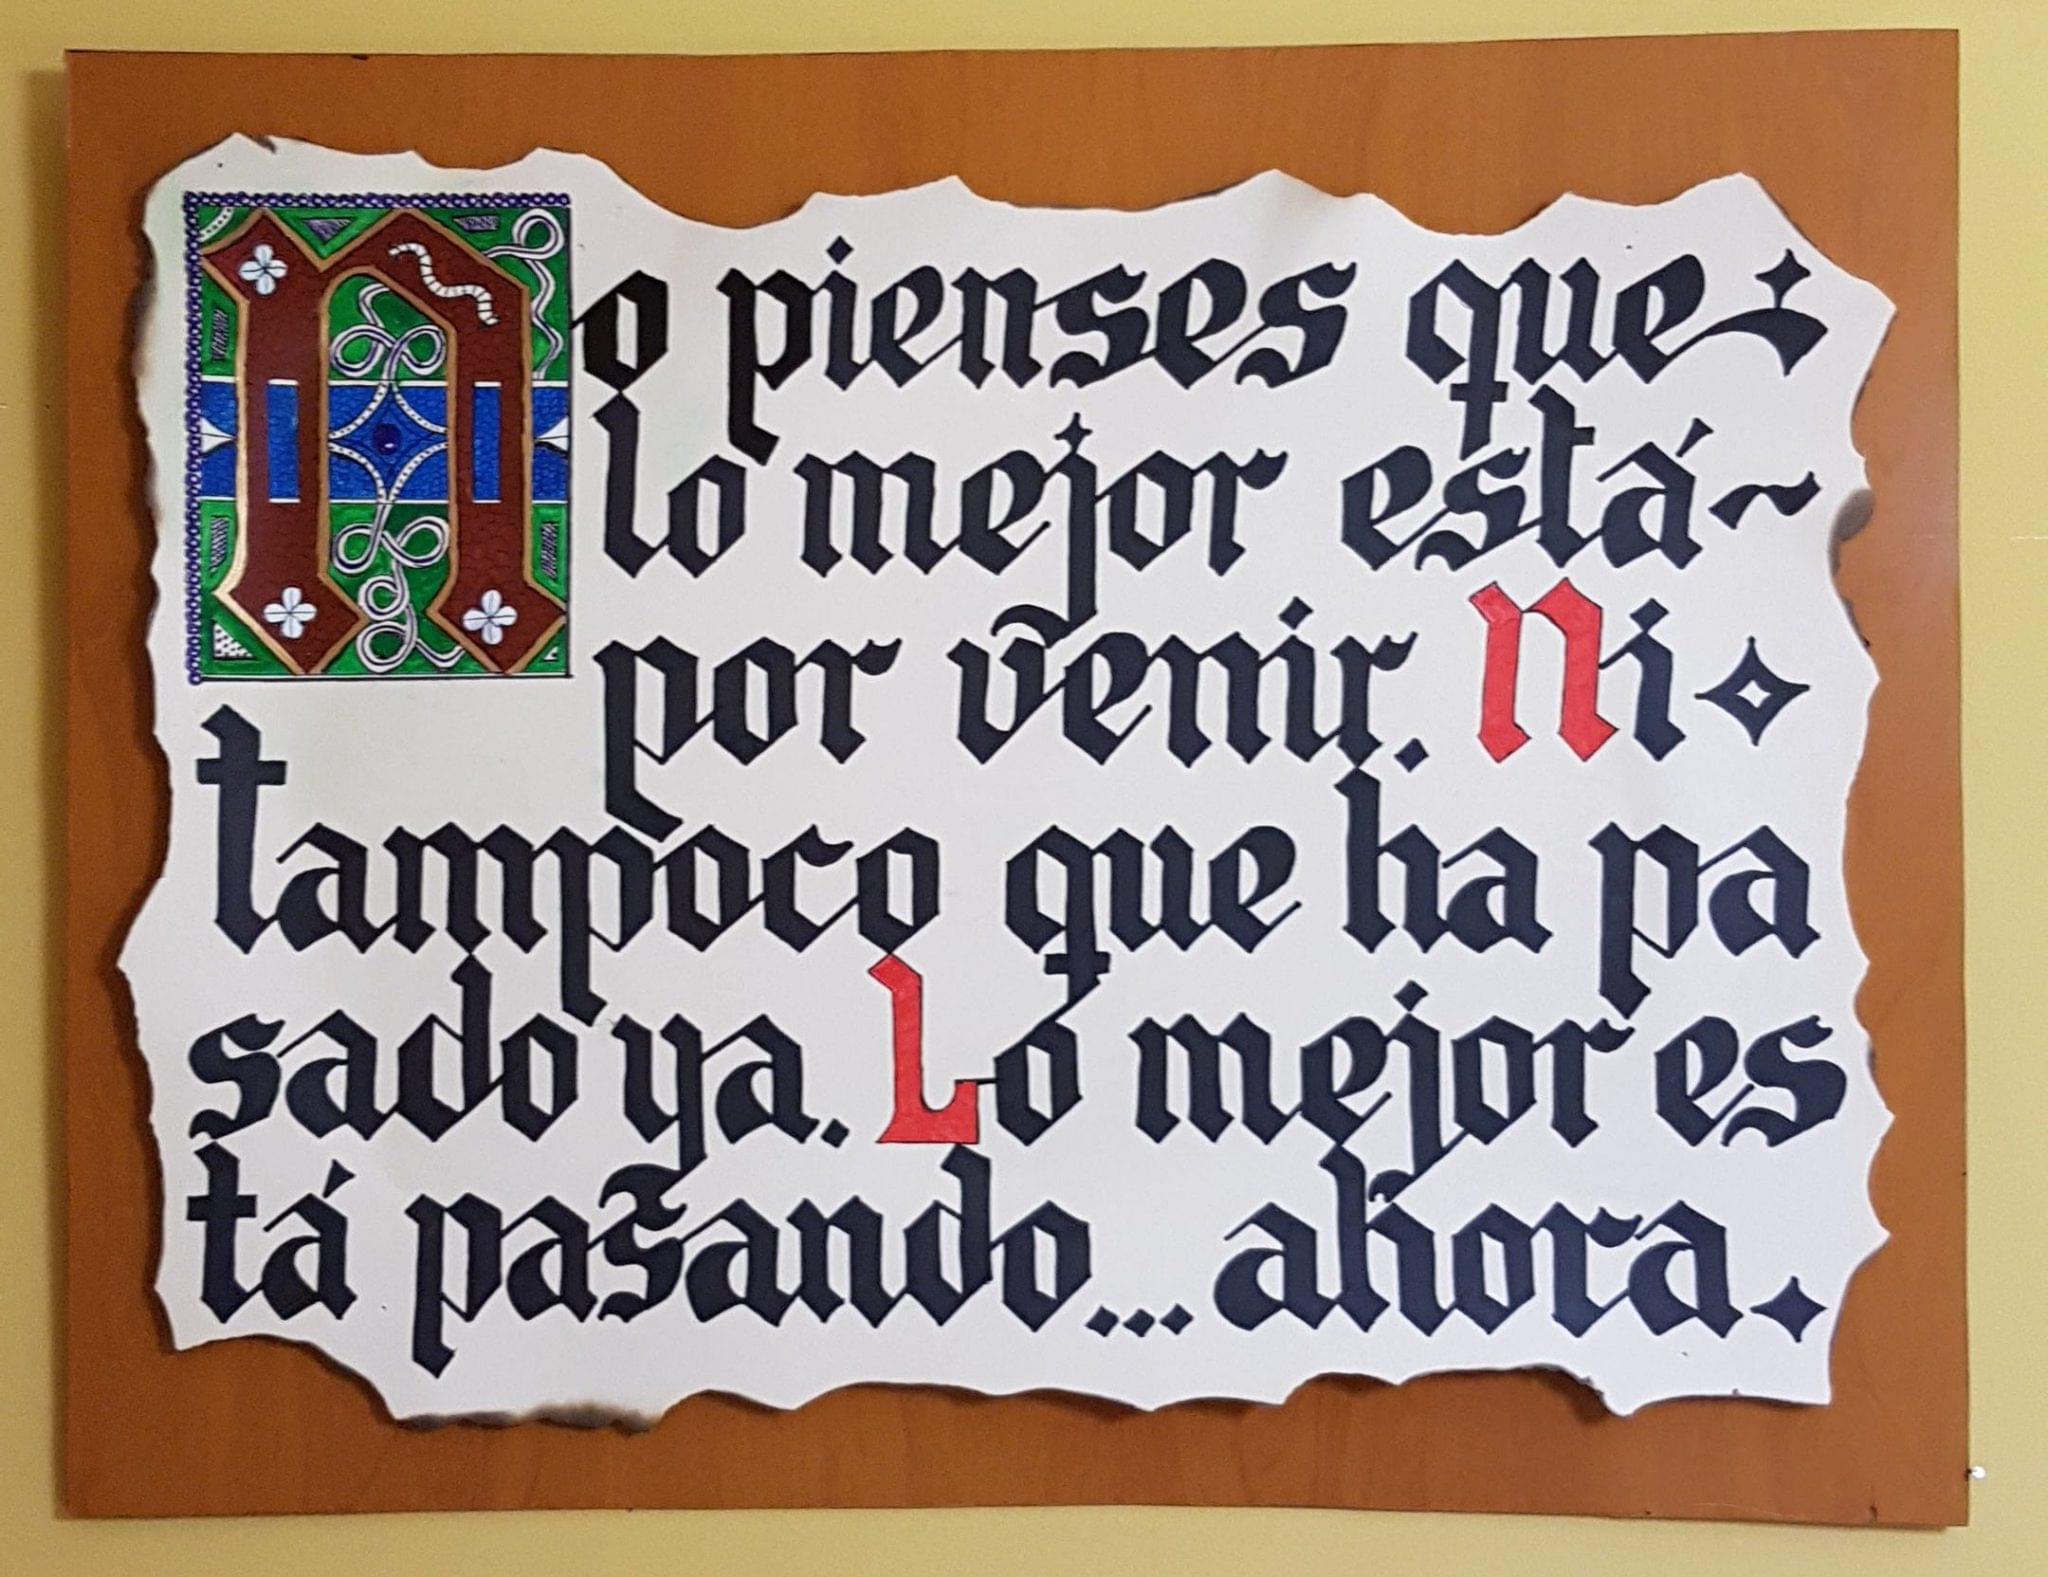 No pienses que
lo mejor está~
por venir. Ni
tampoco que ha pa
sado ya. Lo mejor es
tá pasando... ahora.